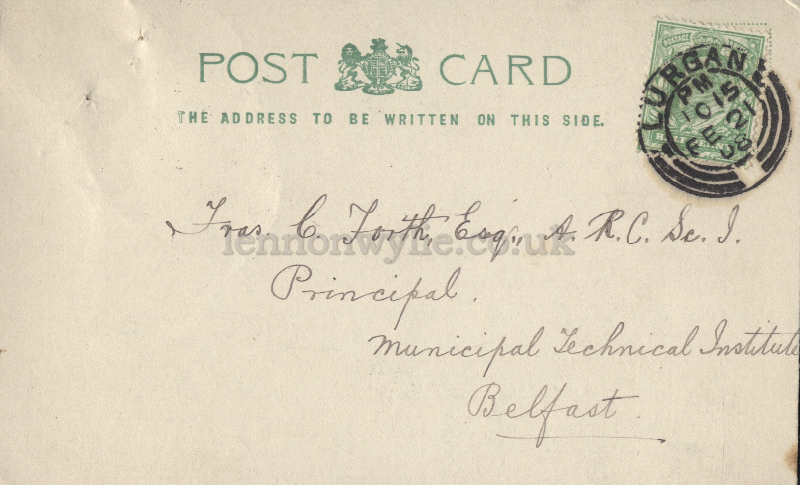 POST CARD
THE ADDRESS TO BE WRITTEN ON THIS SIDE.
POSTAGE
LURGAN
PM
10 15
FE 21
08
Fras. C. Forth, Esq., A.R.C.Sc.I.
lennonwylie.co.uk
Principal.
Municipal Technical Institute
Belfast.